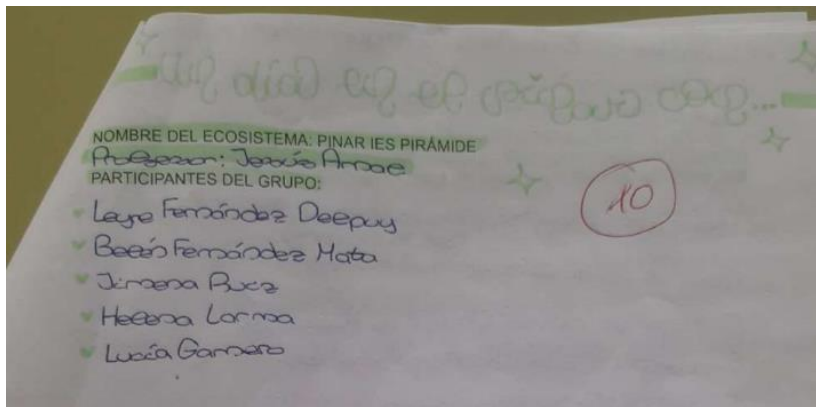 NOMBRE DEL ECOSISTEMA: PINAR IES PIRÁMIDE
Profesor: Jesús Arnae
PARTICIPANTES DEL GRUPO:
Leyre Fernández Deepuy
Belén Fernández Mata
Jimena Ruiz
Helena Lorma
Lucía Gamero
10